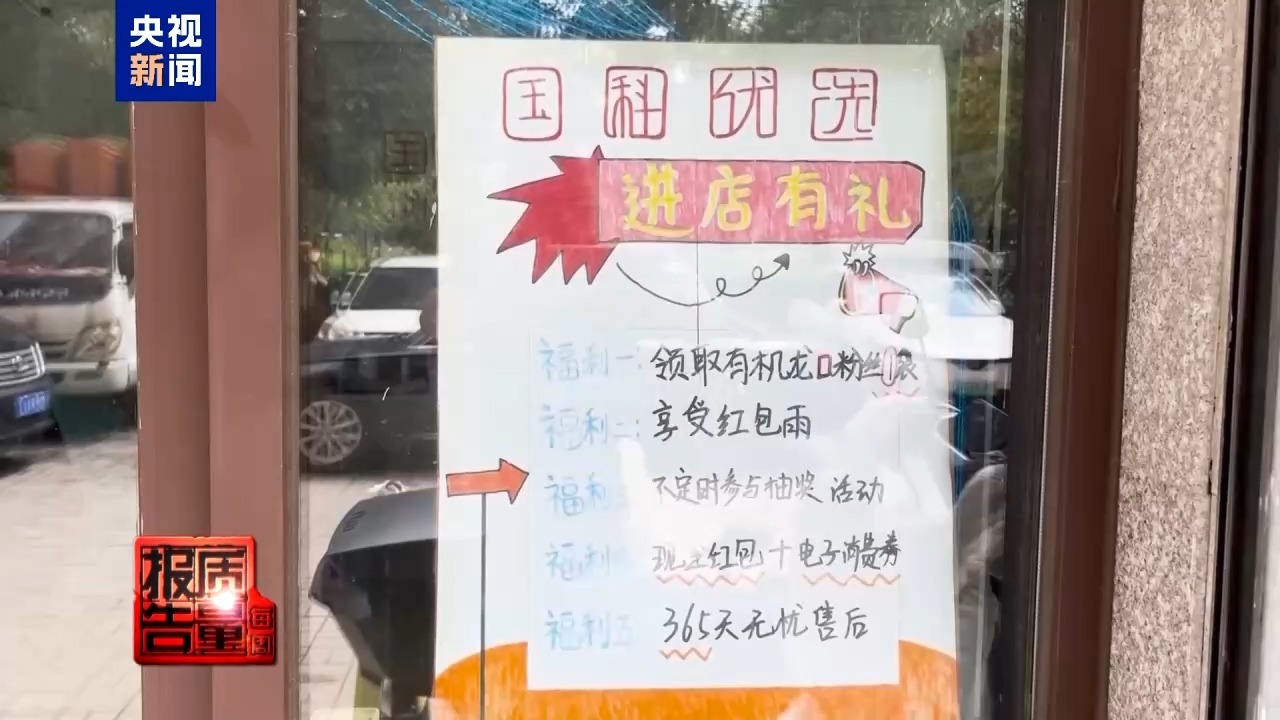 央视
新闻
国科优选
进店有礼
福利一：领取有机龙口粉丝1袋
福利二：享受红包雨
福利三 不定时参与抽奖活动
福利 现金红包+电子消费券
福利五 365天无忧售后
每周
质量
报告